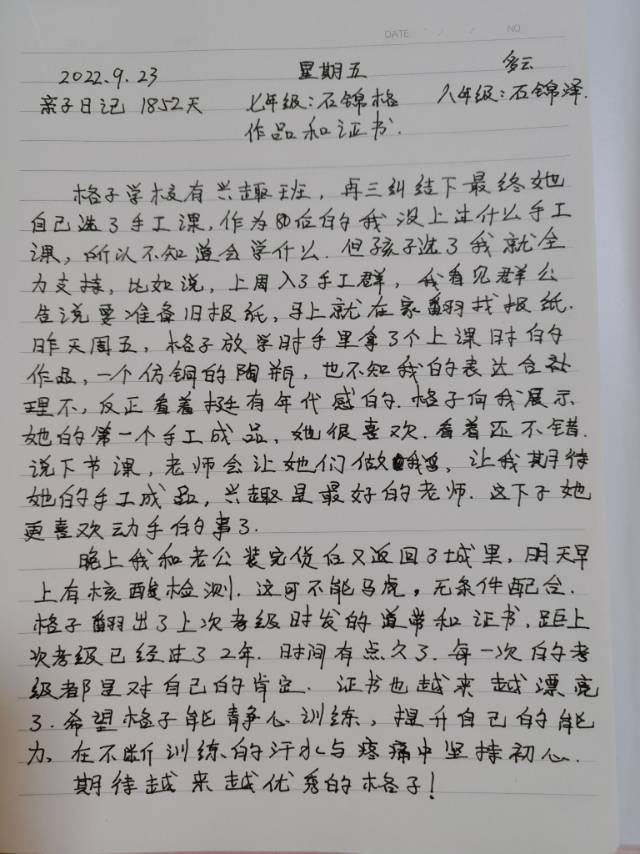 DATE / / NO
2022.9.23 星期五 多云
亲子日记 1852天 七年级:石锦格 八年级:石锦泽.
作品和证书.
格子学校有兴趣班，再三纠结下最终她
自己选了手工课,作为80位的我没上过什么手工
课，所以不知道会学什么.但孩子选了我就全
力支持，比如说，上周入了手工群，我看见群公
告说要准备旧报纸，马上就在家翻找报纸.
昨天周五，格子放学时手里拿了个上课时的
作品，一个仿铜的陶瓶，也不知我的表达合处
理不，反正看着挺有年代感的.格子向我展示
她的第一个手工成品，她很喜欢.看着还不错.
说下节课，老师会让她们做，让我期待
她的手工成品，兴趣是最好的老师.这下子她
更喜欢动手的事了.
晚上我和老公装完货后又返回了城里，明天早
上有核酸检测.这可不能马虎，无条件配合.
格子翻出了上次考级时发的道带和证书，距上
次考级已经过了2年.时间有点久了.每一次的考
级都是对自己的肯定.证书也越来越漂亮
了.希望格子能静心训练，提升自己的能
力、在不断训练的汗水与疼痛中坚持初心.
期待越来越优秀的格子!